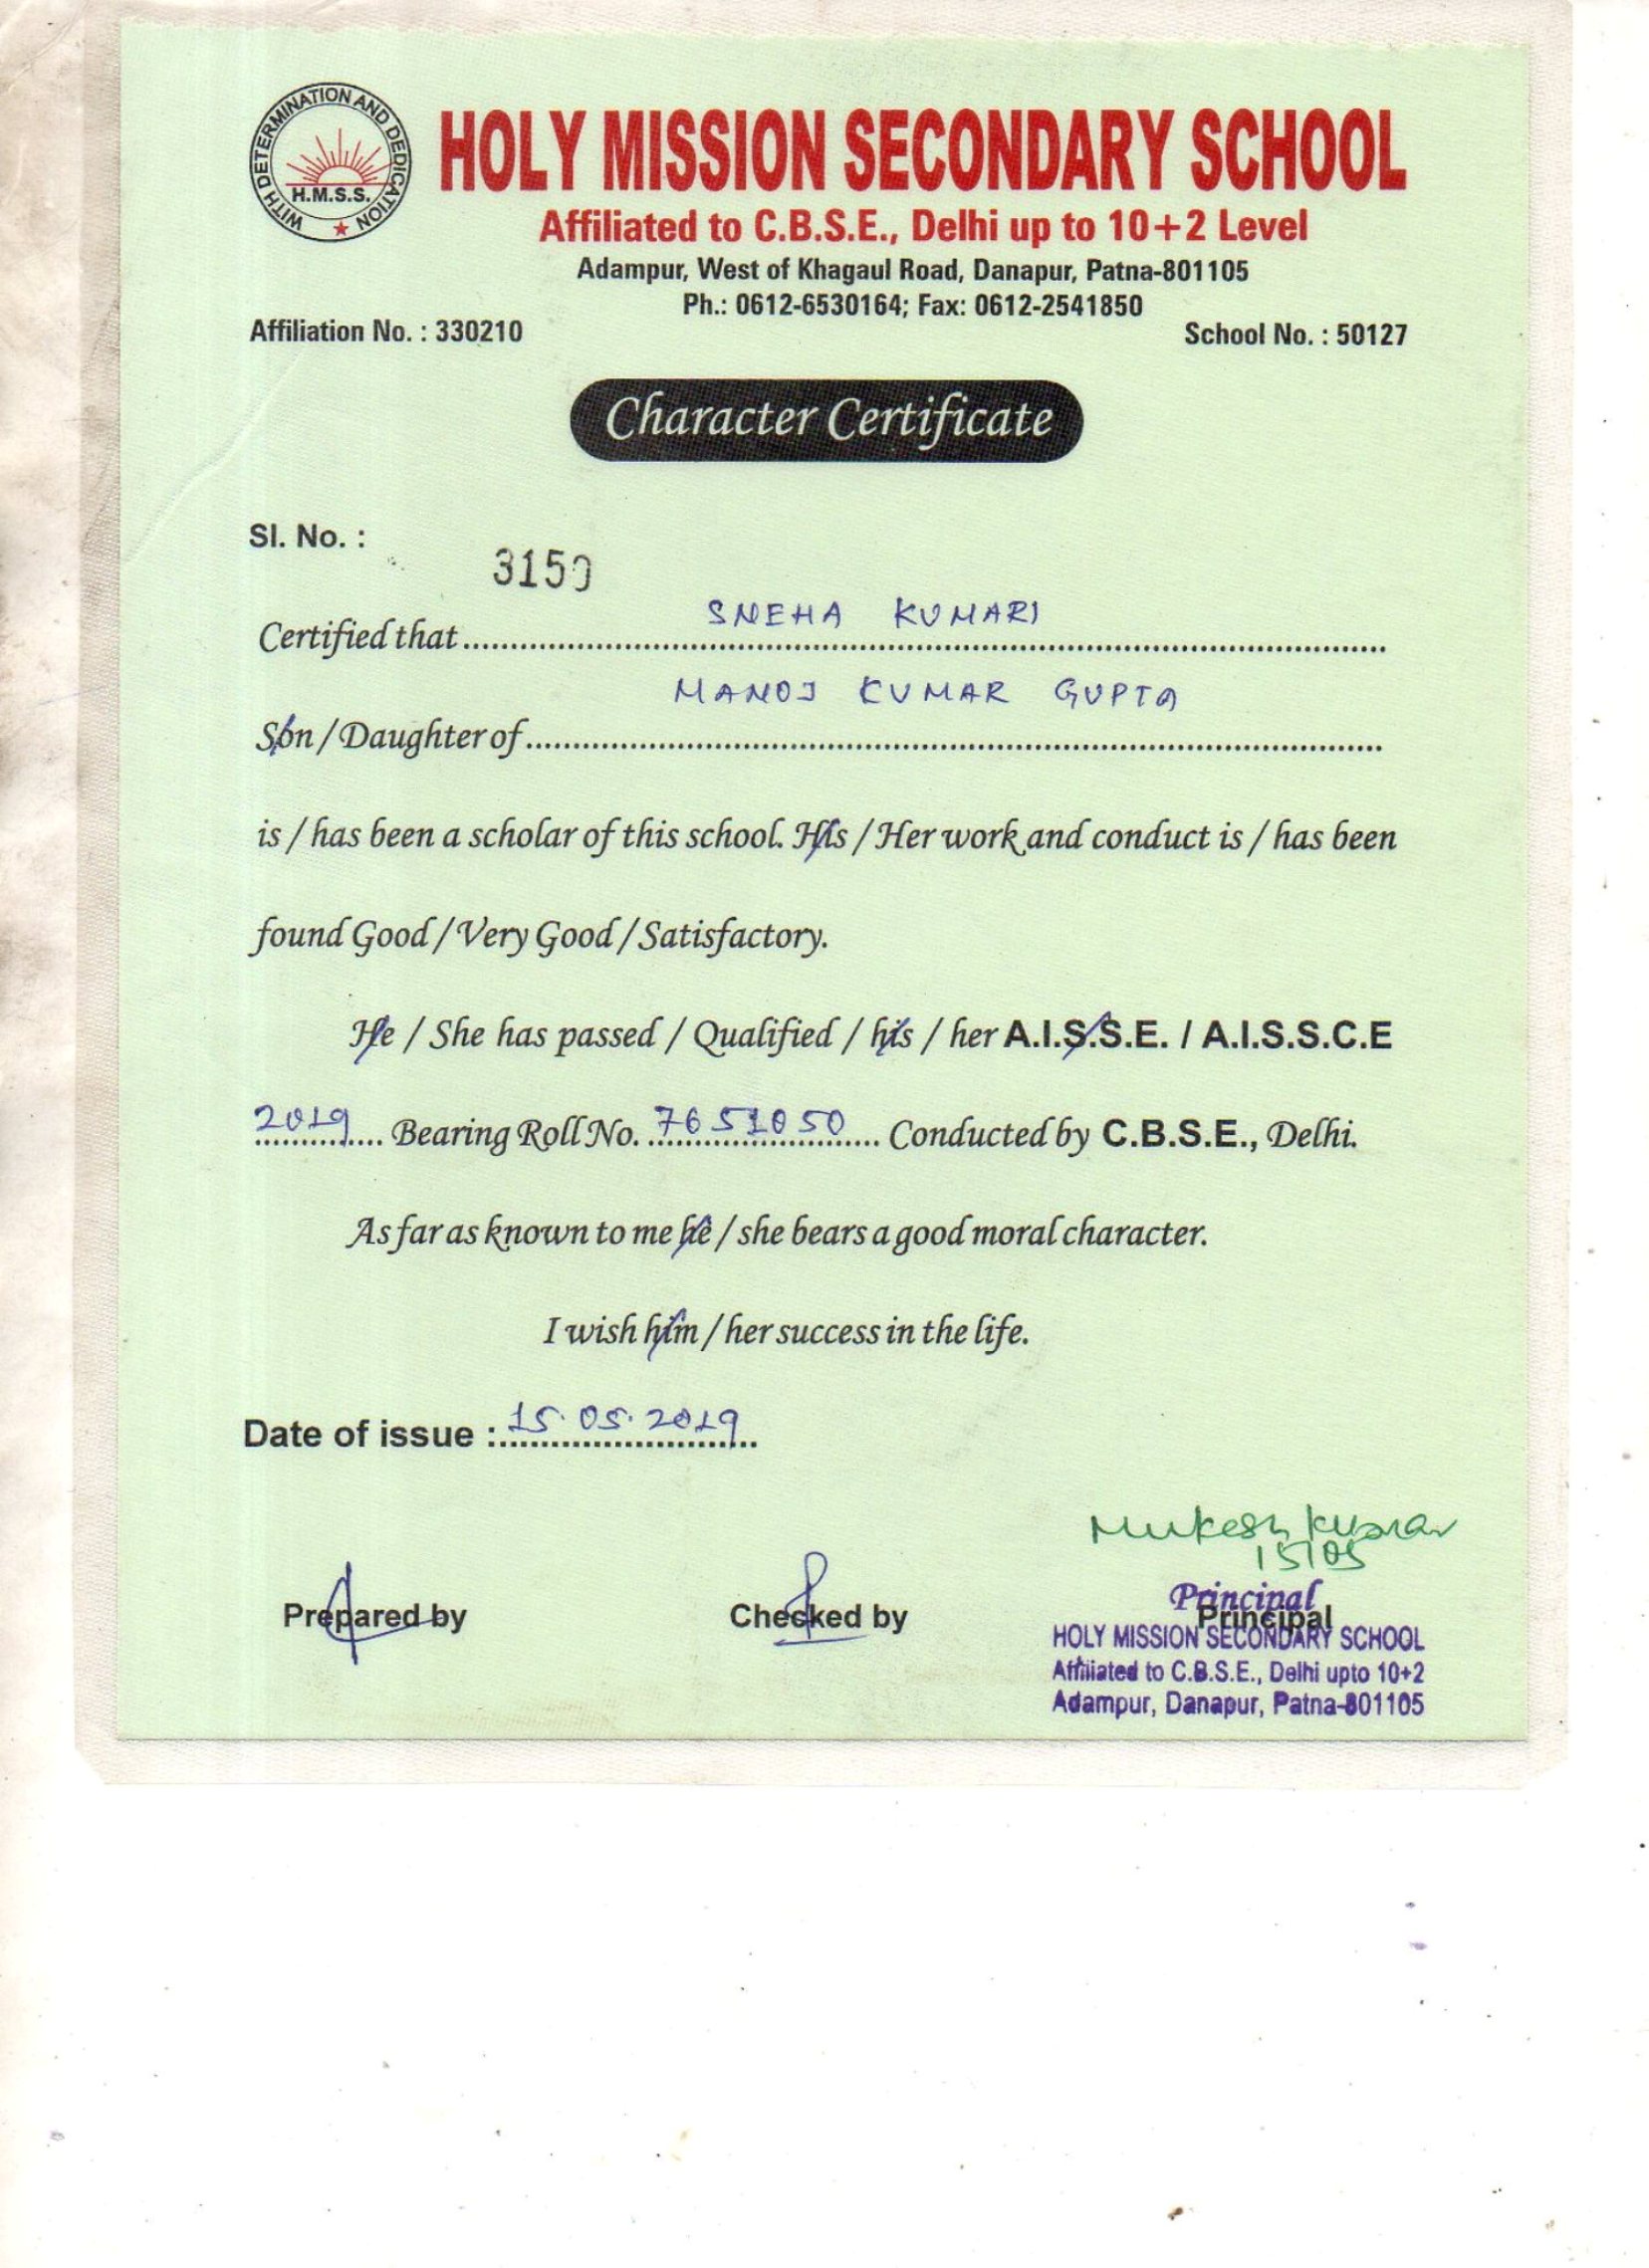 WITH DETERMINATION AND DEDICATION
H.M.S.S.
HOLY MISSION SECONDARY SCHOOL
Affiliated to C.B.S.E., Delhi up to 10+2 Level
Adampur, West of Khagaul Road, Danapur, Patna-801105
Ph.: 0612-6530164; Fax: 0612-2541850
Affiliation No. : 330210 School No. : 50127
Character Certificate
Sl. No. :
3150
Certified that SNEHA KUMARI
MANOJ KUMAR GUPTA
Son / Daughter of
is / has been a scholar of this school. His / Her work and conduct is / has been
found Good / Very Good / Satisfactory.
He / She has passed / Qualified / his / her A.I.S.S.E. / A.I.S.S.C.E
2019 Bearing Roll No. 7651050 Conducted by C.B.S.E., Delhi.
As far as known to me he / she bears a good moral character.
I wish him / her success in the life.
Date of issue : 15.05.2019
Mukesh Kumar
15/05
Principal
Prepared by Checked by Principal
HOLY MISSION SECONDARY SCHOOL
Affiliated to C.B.S.E., Delhi upto 10+2
Adampur, Danapur, Patna-801105